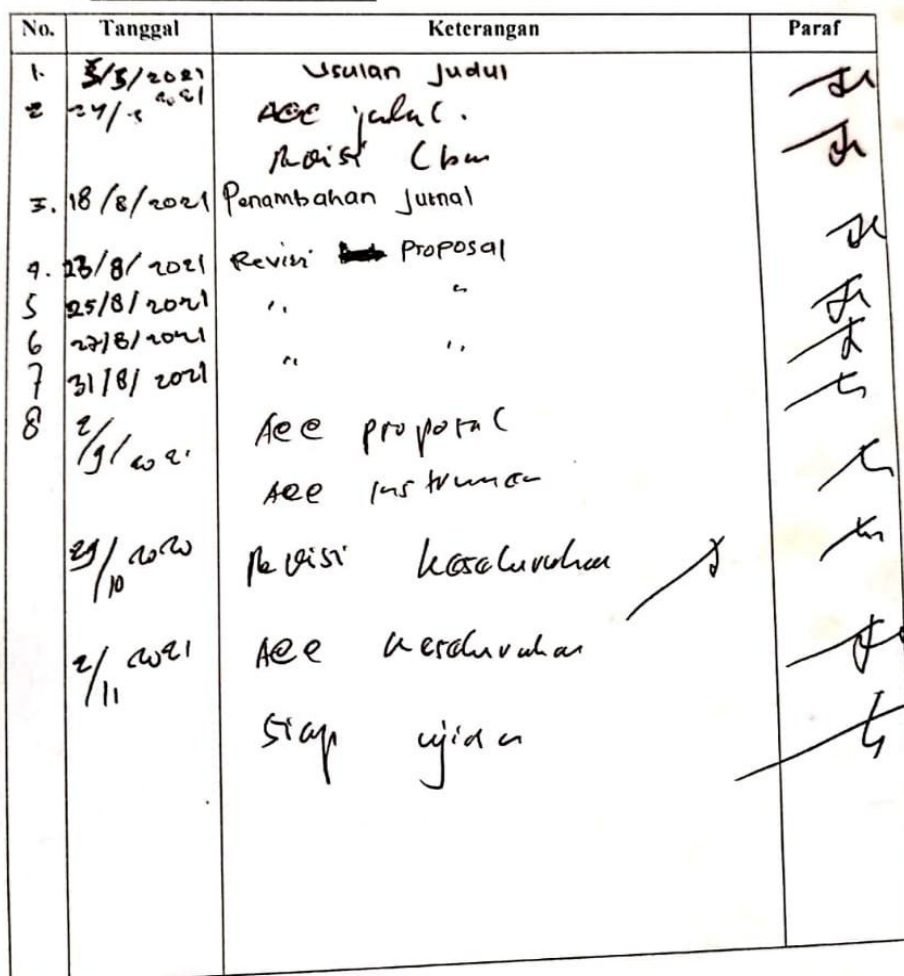 No. Tanggal Keterangan Paraf
1. 3/3/2021 Usulan Judul
2 24/ 2021 Acc judul.
Revisi
3. 18/8/2021 Penambahan Jurnal
4. 23/8/2021 Revisi Proposal
5 25/8/2021 " "
6 27/8/2021
7 31/8/2021 " "
8 2/9/2021 Acc proposal
Acc instrumen
29/10 2020 Revisi keseluruhan
2/11 2021 Acc keseluruhan
Siap ujian